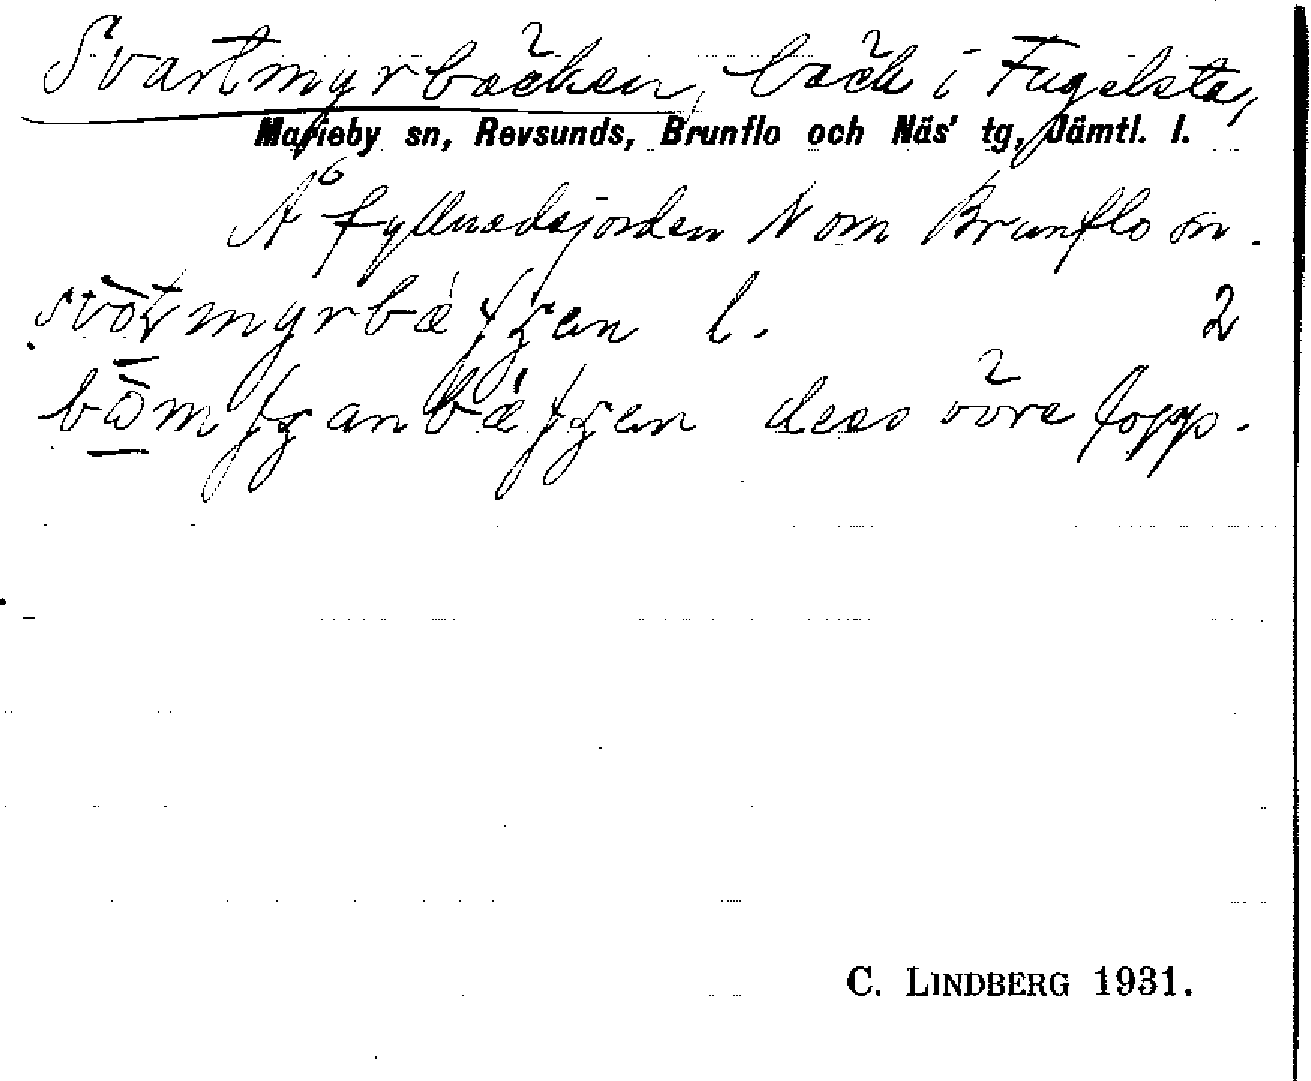 Svartmyrbäcken, bäck i Fugelsta,
Marieby sn, Revsunds, Brunflo och Näs' tg, Jämtl. l.
Å fyllnadsjorden N om Brunflo sn.
l. 2
dess övre lopp.
C. LINDBERG 1931.